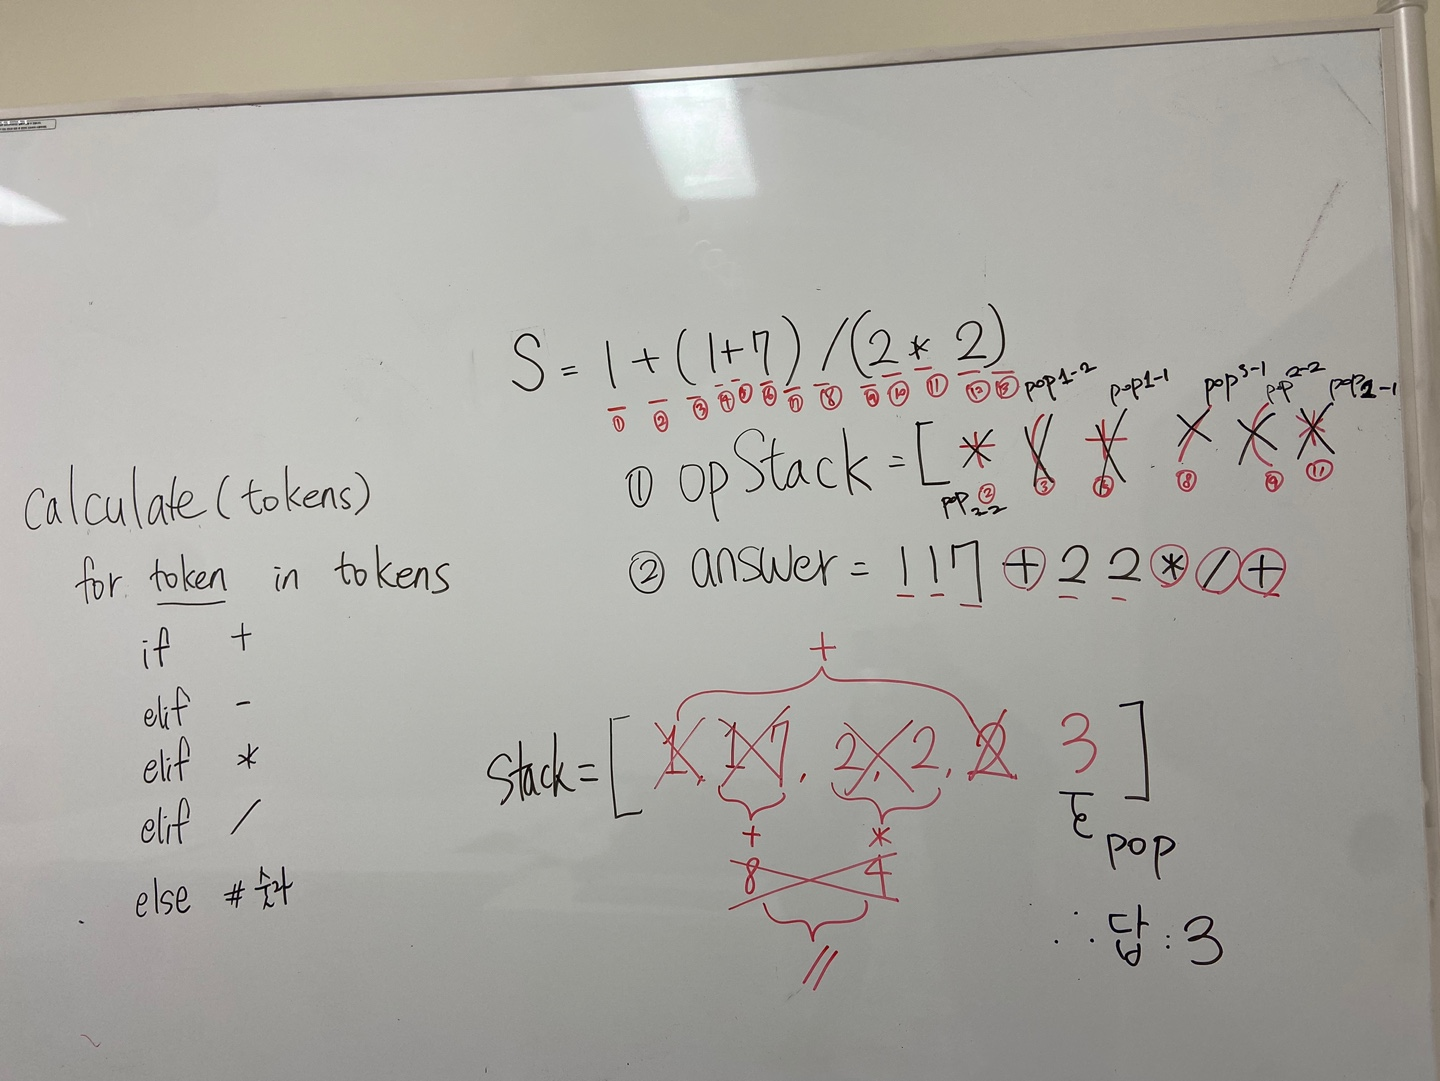 S = 1 + ( 1 + 7 ) / ( 2 * 2 )
① ② ③ ④ ⑤ ⑥ ⑦ ⑧ ⑨ ⑩ ⑪ ⑫ ⑬
pop1-2 pop1-1 pop3-1 pop2-2 pop2-1
① opStack = [
pop22 ② ③ ⑧ ⑨ ⑪
② answer = 1 1 7 + 2 2 * / +
calculate(tokens)
for token in tokens
if +
elif -
elif *
elif /
else # 숫자
+
Stack = [ 1, 1, 7, 2, 2, 2 3 ]
+ *
8 4
//
pop
∴ 답 : 3